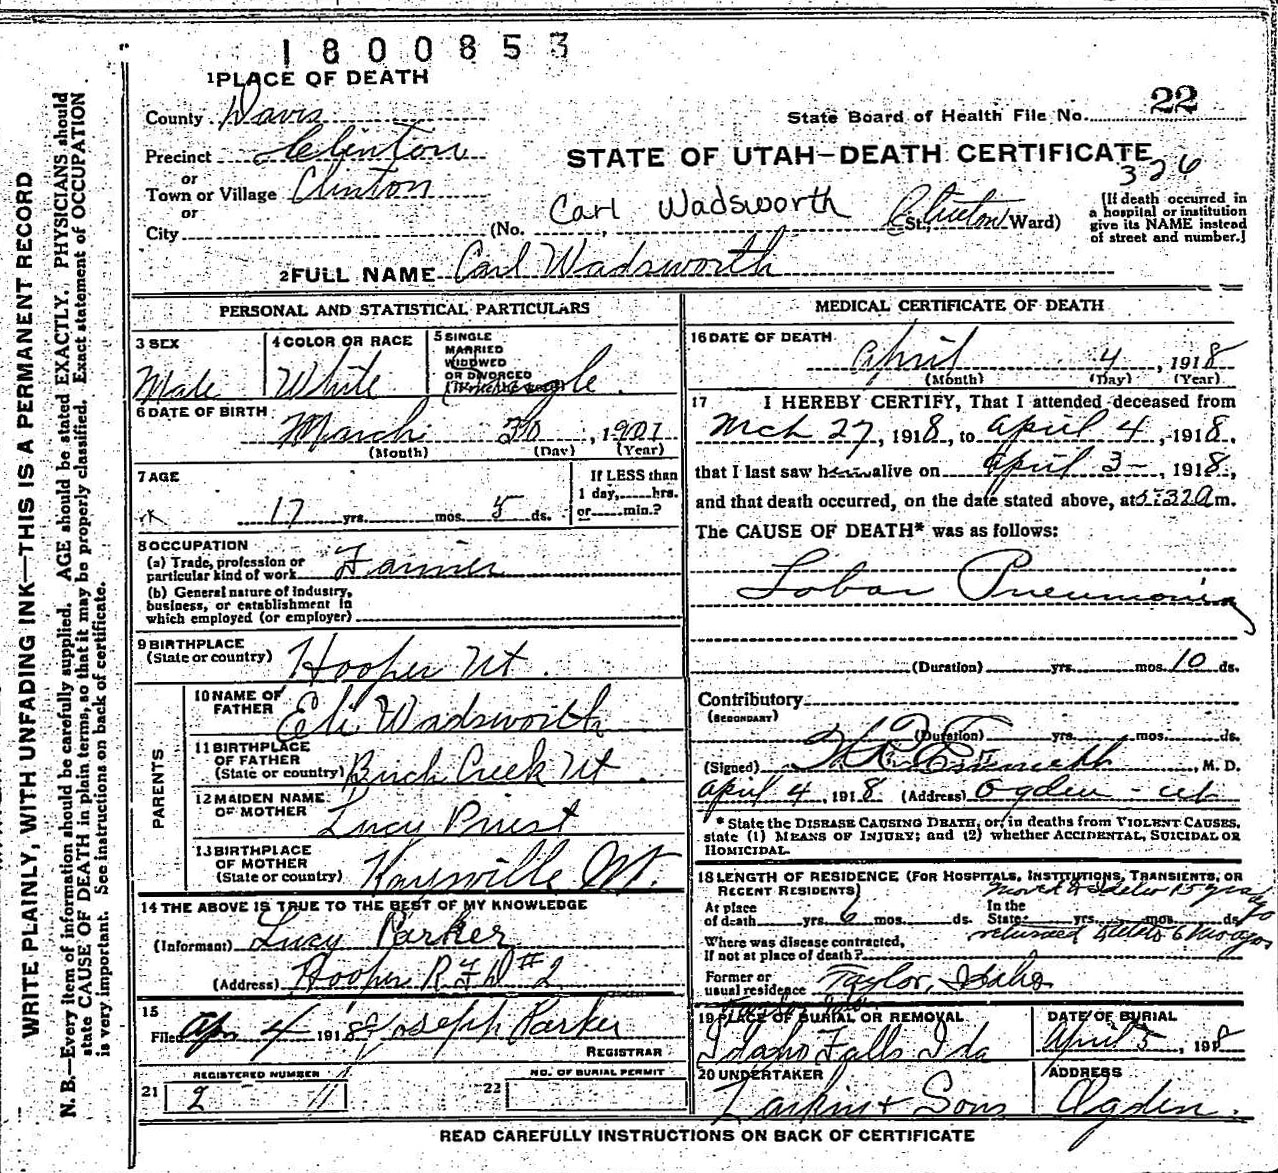 1800853
1 PLACE OF DEATH
County Davis
Precinct Clinton
or
Town or Village Clinton
or
City
State Board of Health File No. 22
STATE OF UTAH—DEATH CERTIFICATE
326
(No. Carl Wadsworth St., Clinton Ward)
[If death occurred in
a hospital or institution
give its NAME instead
of street and number.]
2 FULL NAME Carl Wadsworth
PERSONAL AND STATISTICAL PARTICULARS
3 SEX
Male
4 COLOR OR RACE
White
5 SINGLE
MARRIED
WIDOWED
OR DIVORCED
6 DATE OF BIRTH
March 30, 1901
(Month) (Day) (Year)
7 AGE
17 yrs. mos. 5 ds.
If LESS than
1 day, hrs.
or min.?
8 OCCUPATION
(a) Trade, profession or
particular kind of work Farmer
(b) General nature of industry,
business, or establishment in
which employed (or employer)
9 BIRTHPLACE
(State or country) Hooper Ut.
PARENTS
10 NAME OF
FATHER Eli Wadsworth
11 BIRTHPLACE
OF FATHER
(State or country) Burch Creek Ut.
12 MAIDEN NAME
OF MOTHER Lucy Priest
13 BIRTHPLACE
OF MOTHER
(State or country) Kaysville Ut.
14 THE ABOVE IS TRUE TO THE BEST OF MY KNOWLEDGE
(Informant) Lucy Parker
(Address) Hooper R F D #2
15
Filed Apr 4 1918 Joseph Parker
REGISTRAR
REGISTERED NUMBER
21 2 11
NO. OF BURIAL PERMIT
22
MEDICAL CERTIFICATE OF DEATH
16 DATE OF DEATH
April 4, 1918
(Month) (Day) (Year)
17 I HEREBY CERTIFY, That I attended deceased from
Mch 27, 1918, to April 4, 1918,
that I last saw h alive on April 3, 1918,
and that death occurred, on the date stated above, at 5:32 a m.
The CAUSE OF DEATH* was as follows:
Lobar Pneumonia
(Duration) yrs. mos. 10 ds.
Contributory
(SECONDARY)
(Duration) yrs. mos. ds.
(Signed) M. D.
April 4, 1918 (Address) Ogden - Ut
* State the DISEASE CAUSING DEATH, or, in deaths from VIOLENT CAUSES,
state (1) MEANS OF INJURY; and (2) whether ACCIDENTAL, SUICIDAL OR
HOMICIDAL.
18 LENGTH OF RESIDENCE (FOR HOSPITALS, INSTITUTIONS, TRANSIENTS, OR
RECENT RESIDENTS) 15 yrs ago
At place
of death yrs. 6 mos. ds.
In the
State yrs. mos. ds.
returned 6 mo ago
Where was disease contracted,
If not at place of death?
Former or
usual residence Taylor, Idaho
19 PLACE OF BURIAL OR REMOVAL
Idaho Falls Ida
DATE OF BURIAL
April 5, 1918
20 UNDERTAKER
Larkin & Sons
ADDRESS
Ogden.
READ CAREFULLY INSTRUCTIONS ON BACK OF CERTIFICATE
WRITE PLAINLY, WITH UNFADING INK—THIS IS A PERMANENT RECORD
N. B.—Every item of information should be carefully supplied. AGE should be stated EXACTLY. PHYSICIANS should
state CAUSE OF DEATH in plain terms, so that it may be properly classified. Exact statement of OCCUPATION
is very important. See instructions on back of certificate.